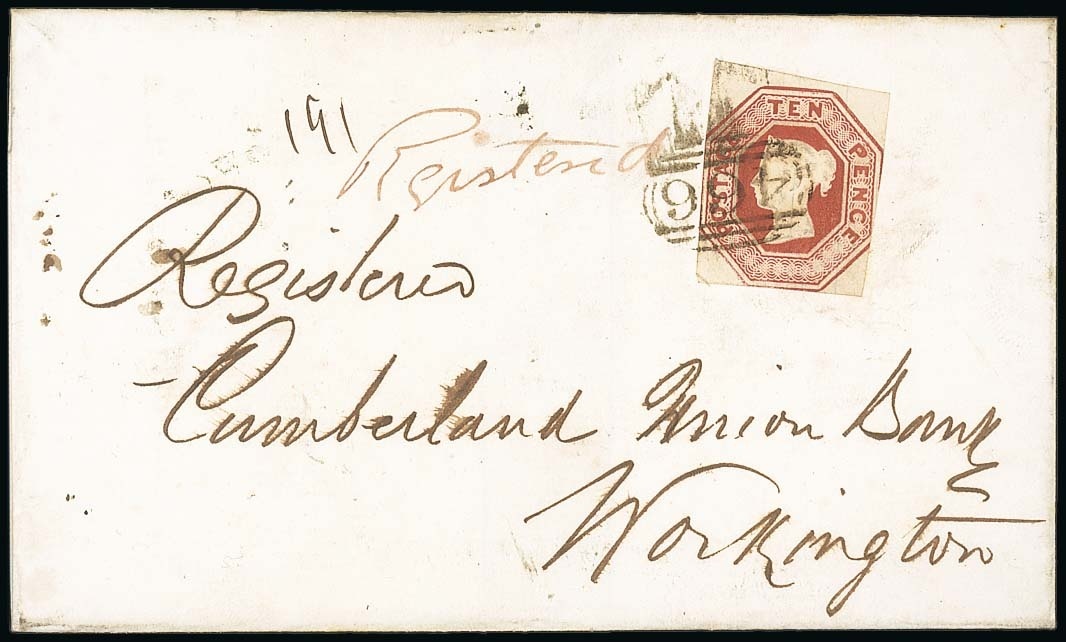 191
Registered
TEN PENCE
POSTAGE
Registered
Cumberland Union Bank
Workington